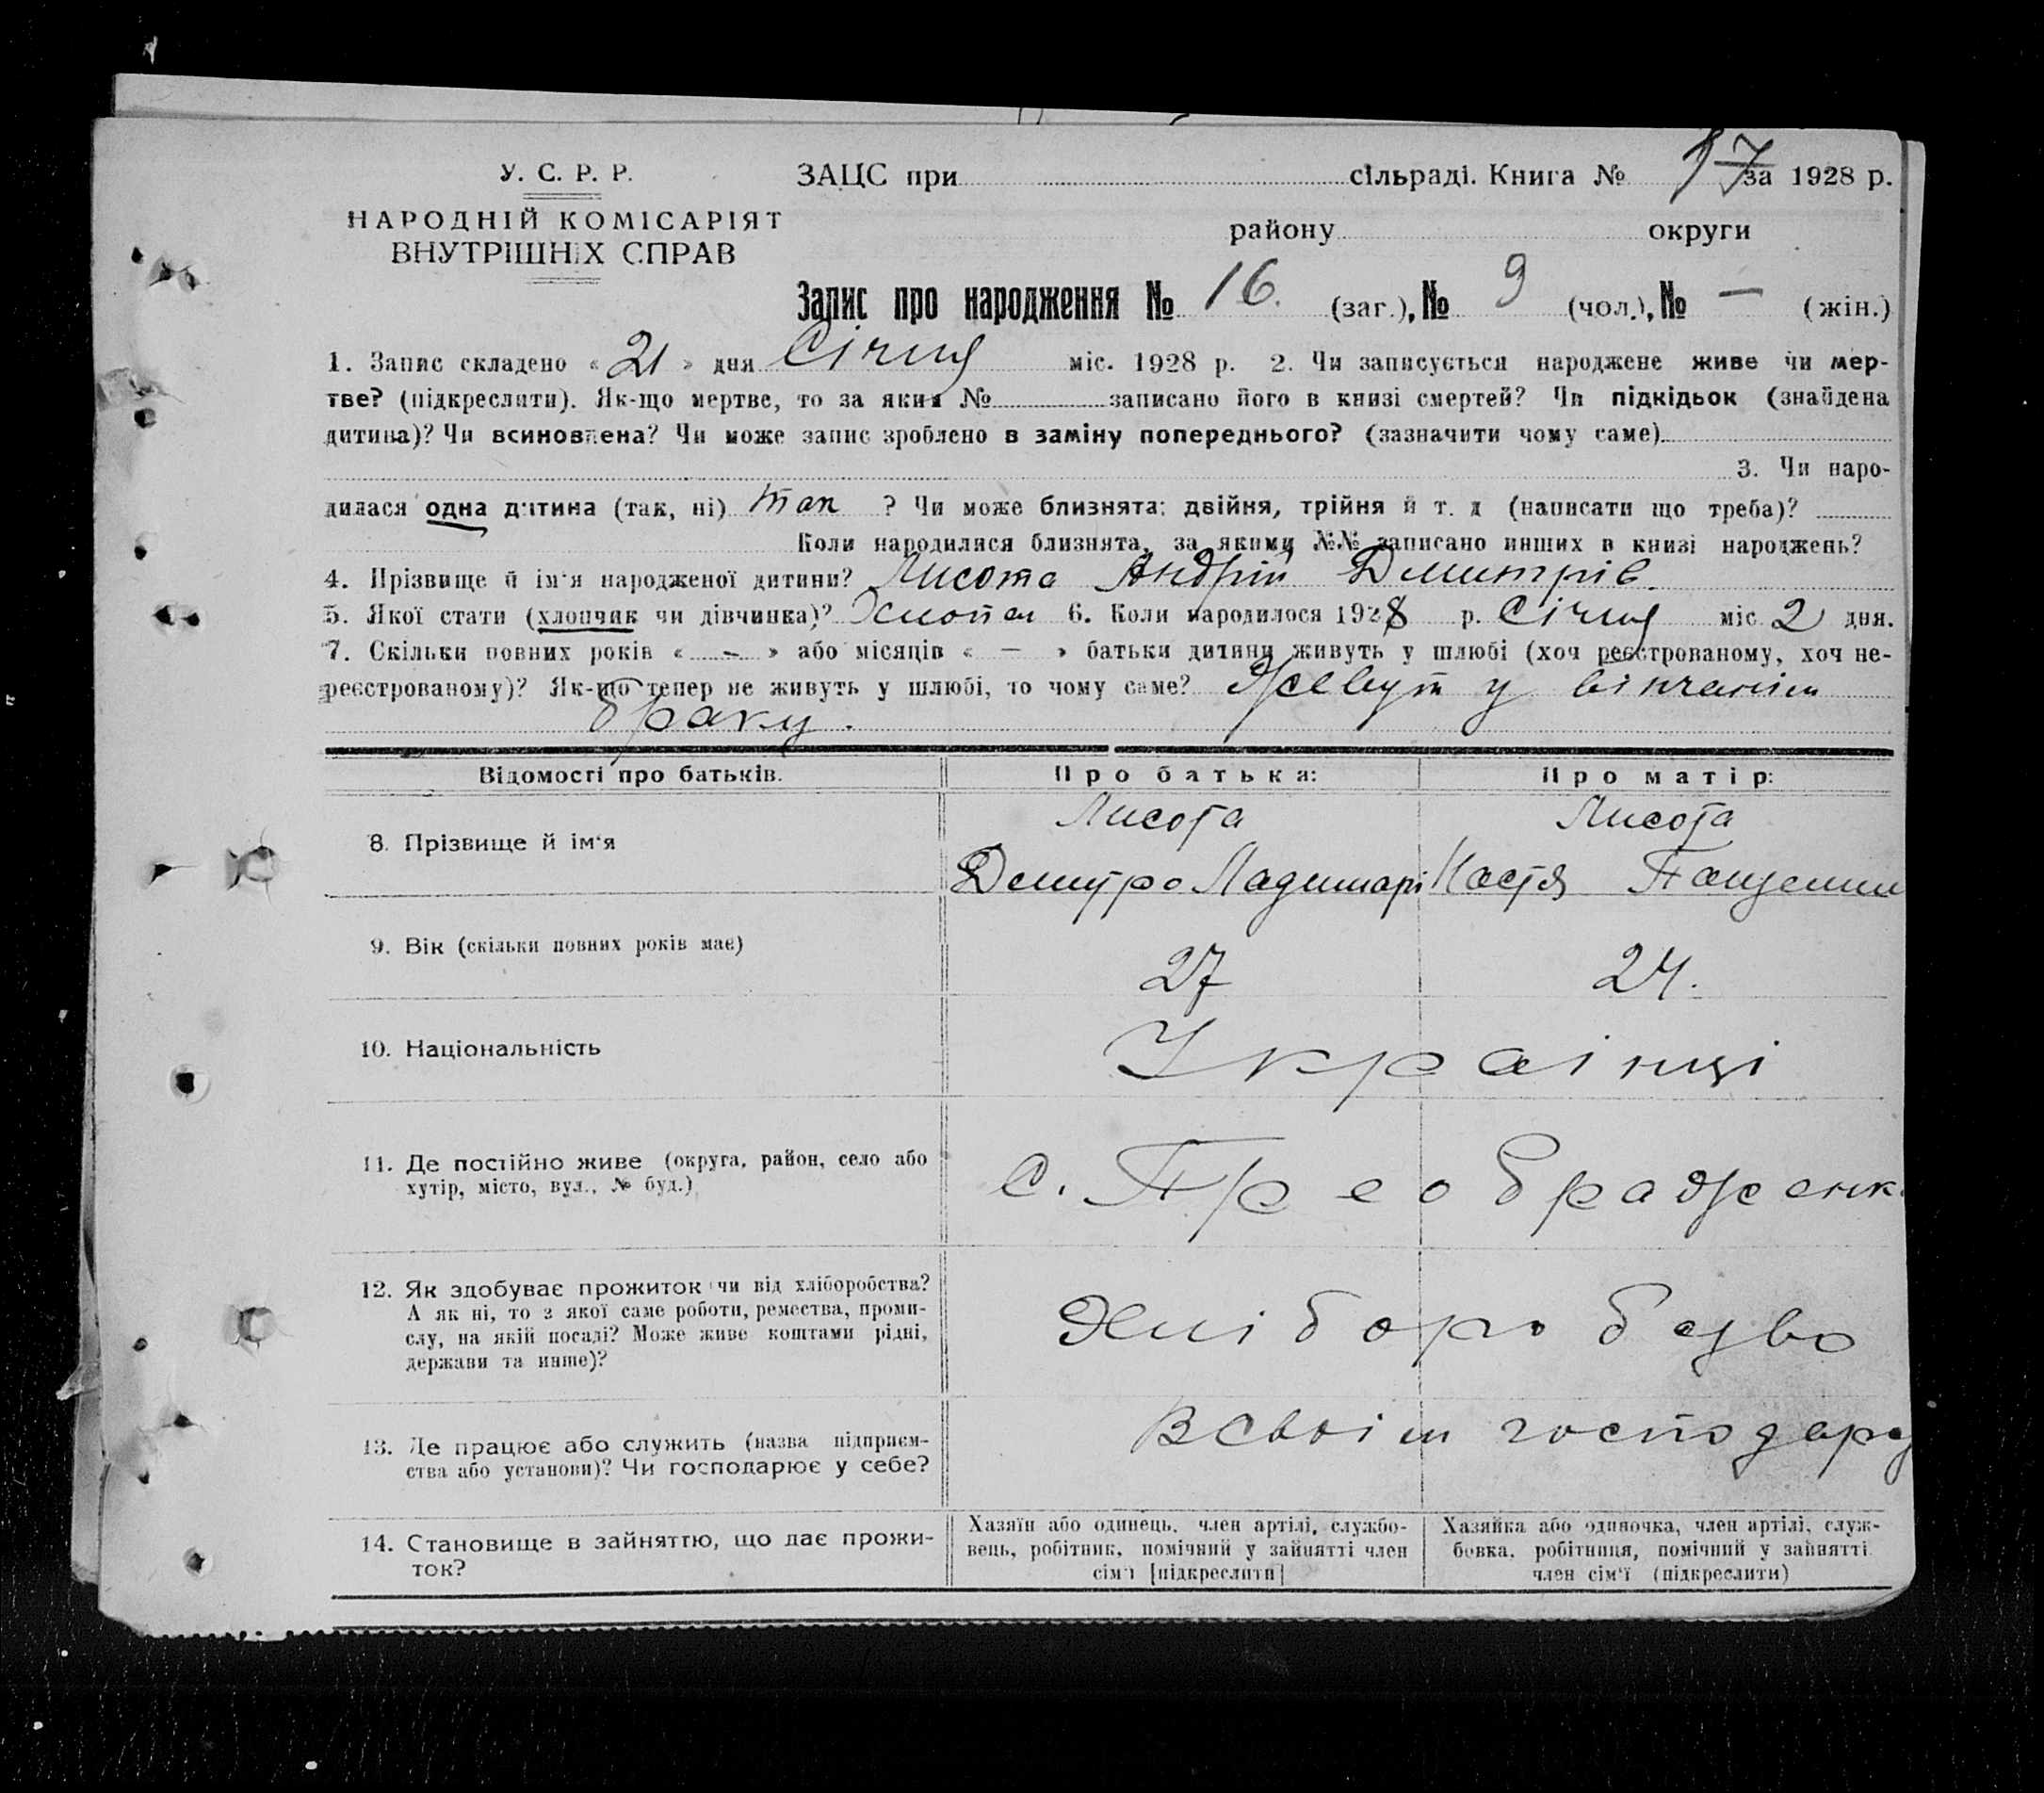 У. С. Р. Р.
НАРОДНІЙ КОМІСАРІЯТ
ВНУТРІШНІХ СПРАВ
ЗАЦС при сільраді. Книга № 17 за 1928 р.
району округи
Запис про народження № 16. (заг.), № 9 (чол.), № — (жін.)
1. Запис складено « 21 » дня Січня міс. 1928 р. 2. Чи записується народжене живе чи мер-
тве? (підкреслити). Як-що мертве, то за яким № записано його в книзі смертей? Чи підкідьок (знайдена
дитина)? Чи всиновлена? Чи може запис зроблено в заміну попереднього? (зазначити чому саме)
3. Чи наро-
дилася одна дитина (так, ні) так ? Чи може близнята: двійня, трійня й т. д (написати що треба)?
Коли народилися близнята, за якими №№ записано инших в книзі народжень?
4. Прізвище й ім'я народженої дитини? Лисота Андрій Дмитрів.
5. Якої стати (хлопчик чи дівчинка)? Хлопец 6. Коли народилося 1928 р. Січня міс. 2 дня.
7. Скільки повних років « – » або місяців « — » батьки дитини живуть у шлюбі (хоч реєстрованому, хоч не-
реєстрованому)? Як-що тепер не живуть у шлюбі, то чому саме? Живут у вінчанім
браку.
Відомості про батьків. Про батька: Про матір:
8. Прізвище й ім'я Лисота Лисота
Дмитро Настя
9. Вік (скільки повних років має) 27 24.
10. Національність Українці
11. Де постійно живе (округа, район, село або
хутір, місто, вул., № буд.) С. Преображенк.
12. Як здобуває прожиток чи від хліборобства?
А як ні, то з якої саме роботи, ремества, проми-
слу, на якій посаді? Може живе коштами рідні,
держави та инше)? Хліборобство
13. Де працює або служить (назва підприєм-
ства або установи)? Чи господарює у себе? В своїм господарс
14. Становище в зайняттю, що дає прожи-
ток?
Хазяїн або одинець, член артілі, службо-
вець, робітник, помічний у зайнятті член
сім'ї [підкреслити]
Хазяйка або одиночка, член артілі, служ-
бовка, робітниця, помічний у зайнятті
член сім'ї (підкреслити)